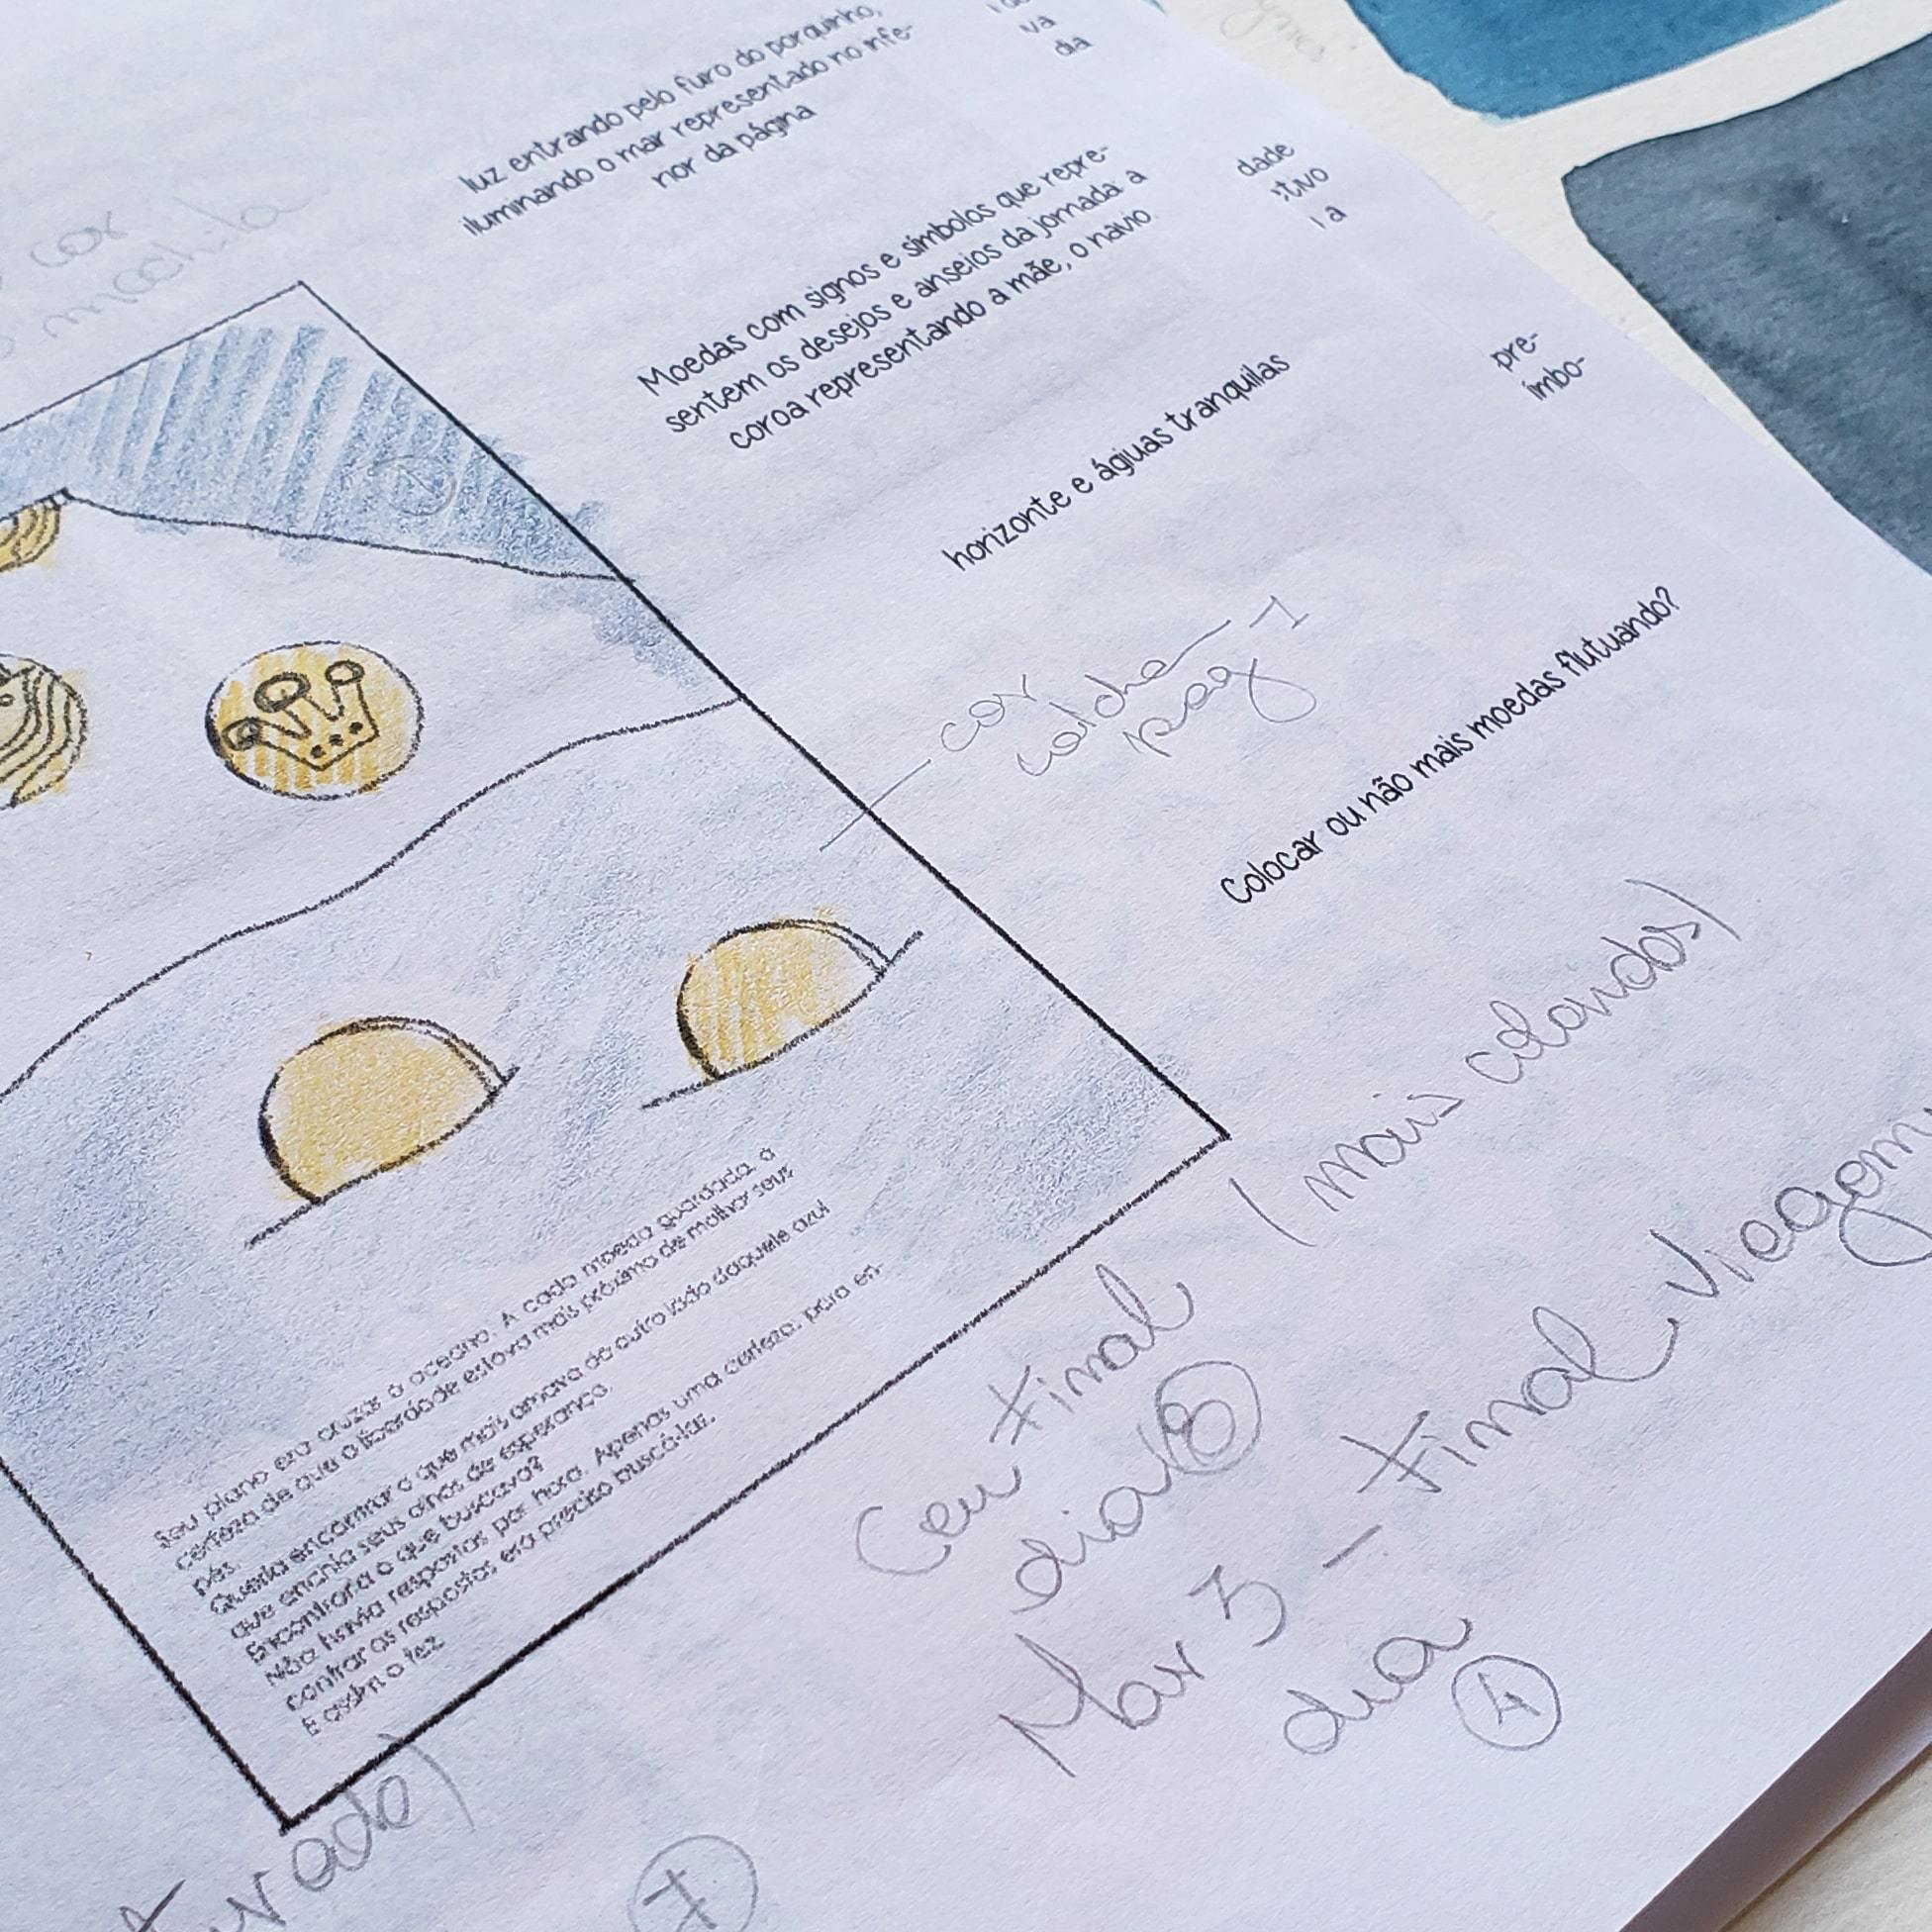 luz entrando pelo furo do porquinho,
iluminando o mar representado no infe-
rior da página
va
dia
Moedas com signos e símbolos que repre-
sentem os desejos e anseios da jornada: a
coroa representando a mãe, o navio
dade
itivo
a
horizonte e águas tranquilas
pre-
ímbo-
cor
mochila
1
cor
colcha
pag 1
Colocar ou não mais moedas flutuando?
(mais claridos)
Seu plano era cruzar o oceano. A cada moeda guardada, a
certeza de que a liberdade estava mais próxima de molhar seus
pés.
Queria encontrar o que mais amava do outro lado daquele azul
que enchia seus olhos de esperança.
Encontraria o que buscava?
Não havia respostas por hora. Apenas uma certeza: para en-
contrar as respostas era preciso buscá-las.
E assim o fez
Ceu Final
dia 8
Mar 3 - Final Viagem
dia
4
urado)
7